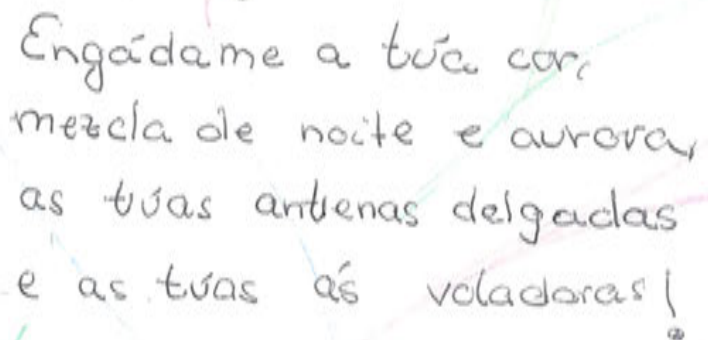 Engádame a túa cor,
mezcla de noite e aurora,
as túas antenas delgadas
e as túas ás voladoras!